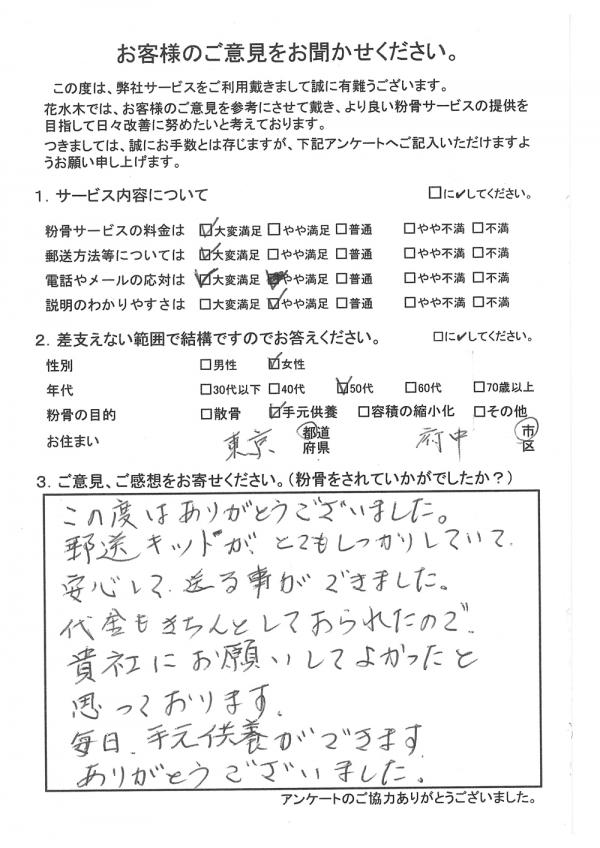 お客様のご意見をお聞かせください。
この度は、弊社サービスをご利用戴きまして誠に有難うございます。
花水木では、お客様のご意見を参考にさせて戴き、より良い粉骨サービスの提供を
目指して日々改善に努めたいと考えております。
つきましては、誠にお手数とは存じますが、下記アンケートへご記入いただけますよ
うお願い申し上げます。
1．サービス内容について □に✔してください。
粉骨サービスの料金は ☑大変満足 □やや満足 □普通 □やや不満 □不満
郵送方法等については ☑大変満足 □やや満足 □普通 □やや不満 □不満
電話やメールの応対は ☑大変満足 ■やや満足 □普通 □やや不満 □不満
説明のわかりやすさは □大変満足 ☑やや満足 □普通 □やや不満 □不満
2．差支えない範囲で結構ですのでお答えください。 □に✔してください。
性別 □男性 ☑女性
年代 □30代以下 □40代 ☑50代 □60代 □70歳以上
粉骨の目的 □散骨 ☑手元供養 □容積の縮小化 □その他
お住まい 東京 都道府県 府中 市区
3．ご意見、ご感想をお寄せください。（粉骨をされていかがでしたか？）
この度はありがとうございました。
郵送キッドが、とてもしっかりしていて、
安心して、送る事ができました。
代金もきちんとしておられたので、
貴社にお願いしてよかったと
思っております。
毎日、手元供養ができます。
ありがとうございました。
アンケートのご協力ありがとうございました。